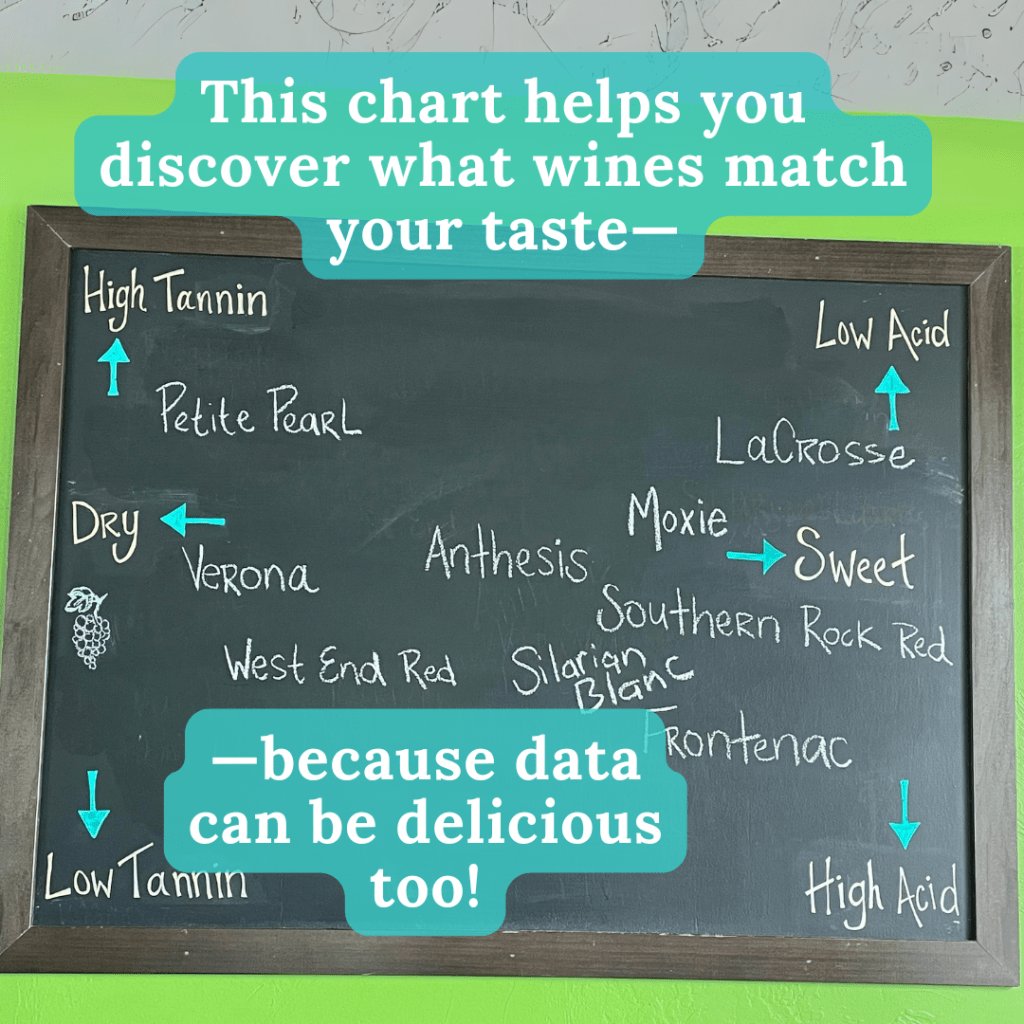 This chart helps you
discover what wines match
your taste—
High Tannin
Low Acid
Petite Pearl
LaCrosse
Moxie
Dry
Anthesis
Sweet
Verona
Southern Rock Red
West End Red
Silarian
Blanc
Frontenac
—because data
can be delicious
too!
Low Tannin
High Acid